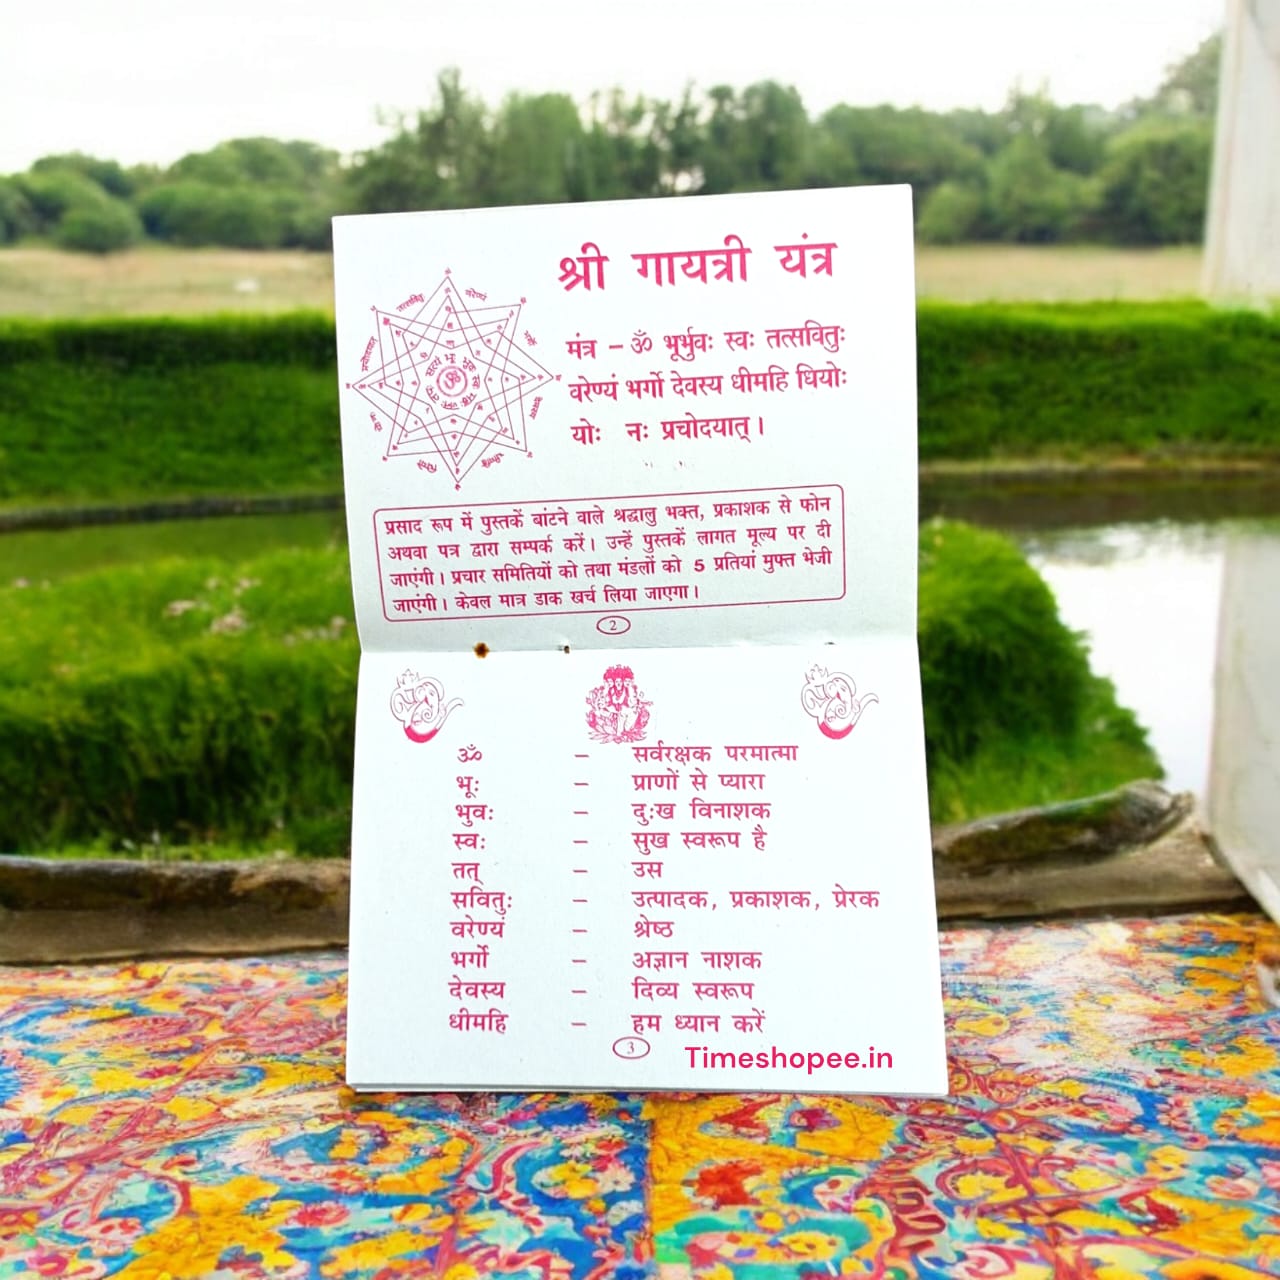 श्री गायत्री यंत्र
मंत्र – ॐ भूर्भुवः स्वः तत्सवितुः
वरेण्यं भर्गो देवस्य धीमहि धियोः
योः नः प्रचोदयात्।
तत्सवितु
वरेण्यं
प्रसाद रूप में पुस्तकें बांटने वाले श्रद्धालु भक्त, प्रकाशक से फोन
अथवा पत्र द्वारा सम्पर्क करें। उन्हें पुस्तकें लागत मूल्य पर दी
जाएंगी। प्रचार समितियों को तथा मंडलों को 5 प्रतियां मुफ्त भेजी
जाएंगी। केवल मात्र डाक खर्च लिया जाएगा।
2
ॐ – सर्वरक्षक परमात्मा
भूः – प्राणों से प्यारा
भुवः – दुःख विनाशक
स्वः – सुख स्वरूप है
तत् – उस
सवितुः – उत्पादक, प्रकाशक, प्रेरक
वरेण्यं – श्रेष्ठ
भर्गो – अज्ञान नाशक
देवस्य – दिव्य स्वरूप
धीमहि – हम ध्यान करें
3
Timeshopee.in